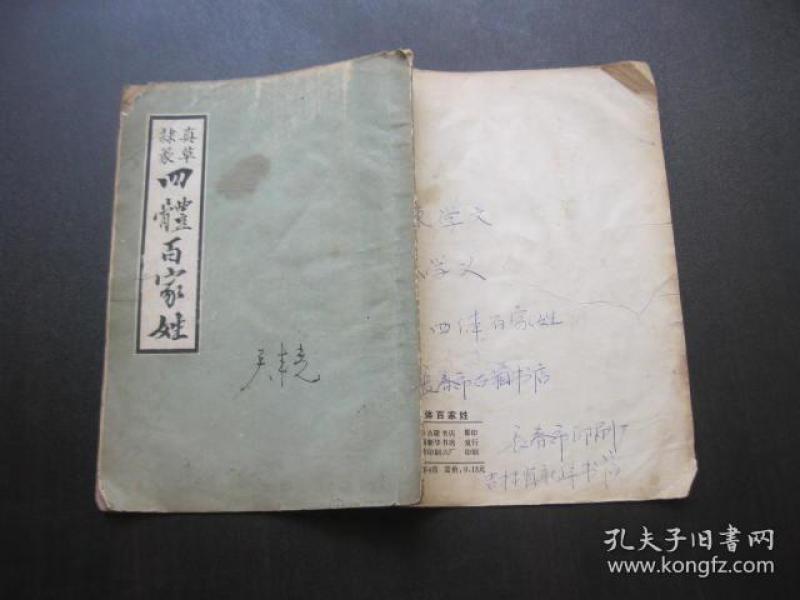 真草
隸篆
四體百家姓
学文
学义
四体百家姓
长春市古籍书店
体百家姓
古籍书店 影印
新华书店 发行
印刷厂 印刷
定价：0.18元
长春市印刷厂
吉林省新华书店
孔夫子旧书网
www.kongfz.com